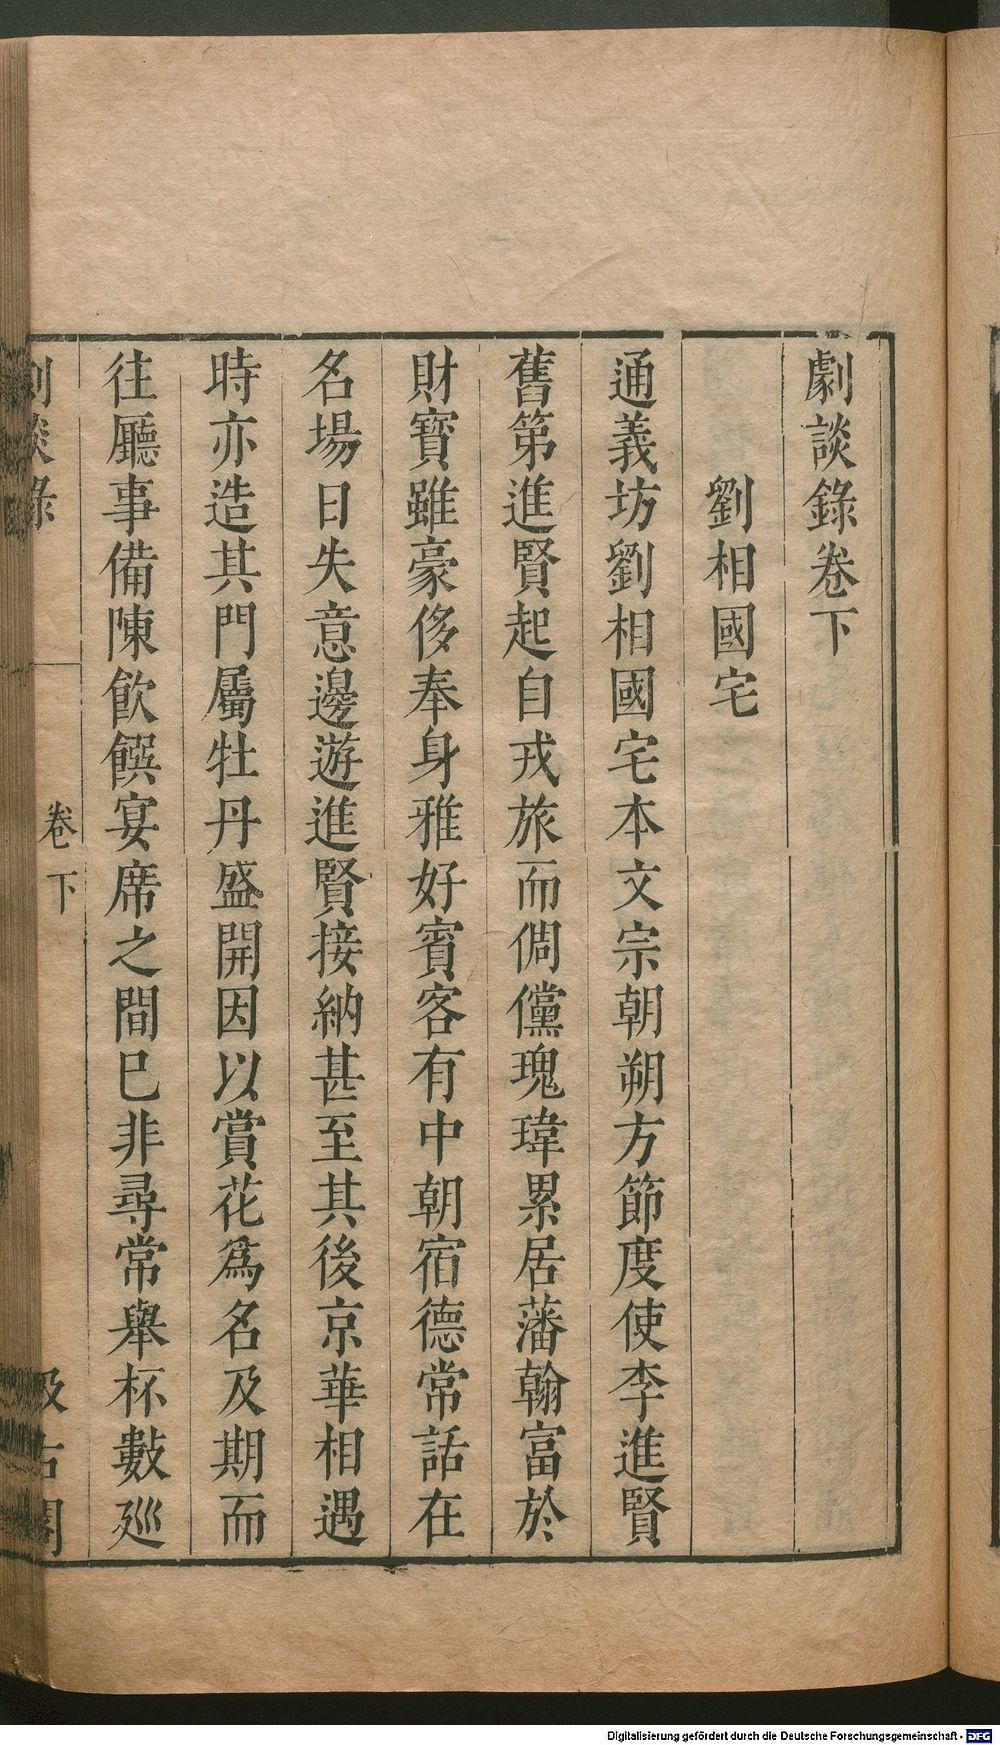 劇談錄卷下
劉相國宅
通義坊劉相國宅本文宗朝朔方節度使李進賢
舊第進賢起自戎旅而倜儻瑰瑋累居藩翰富於
財寶雖豪侈奉身雅好賓客有中朝宿德常話在
名場日失意邊遊進賢接納甚至其後京華相遇
時亦造其門屬牡丹盛開因以賞花爲名及期而
往廳事備陳飮饌宴席之間巳非尋常舉杯數廵
劇談錄 卷下 汲古閣
Digitalisierung gefördert durch die Deutsche Forschungsgemeinschaft - DFG